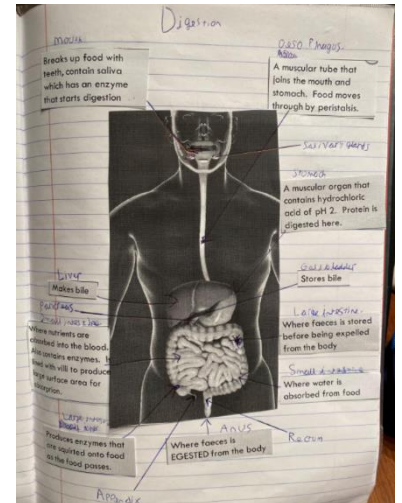 Digestion
mouth
Breaks up food with
teeth, contain saliva
which has an enzyme
that starts digestion
Oesophagus
A muscular tube that
joins the mouth and
stomach. Food moves
through by peristalsis.
Salivary glands
Stomach
A muscular organ that
contains hydrochloric
acid of pH 2. Protein is
digested here.
Liver
Makes bile
Gall bladder
Stores bile
Pancreas
Small intestine
Where nutrients are
absorbed into the blood.
Also contains enzymes. Is
lined with villi to produce
large surface area for
absorption.
Large intestine
Where faeces is stored
before being expelled
from the body
Small intestine
Where water is
absorbed from food
Large
Produces enzymes that
are squirted onto food
as the food passes.
Anus
Where faeces is
EGESTED from the body
Rectum
Appendix